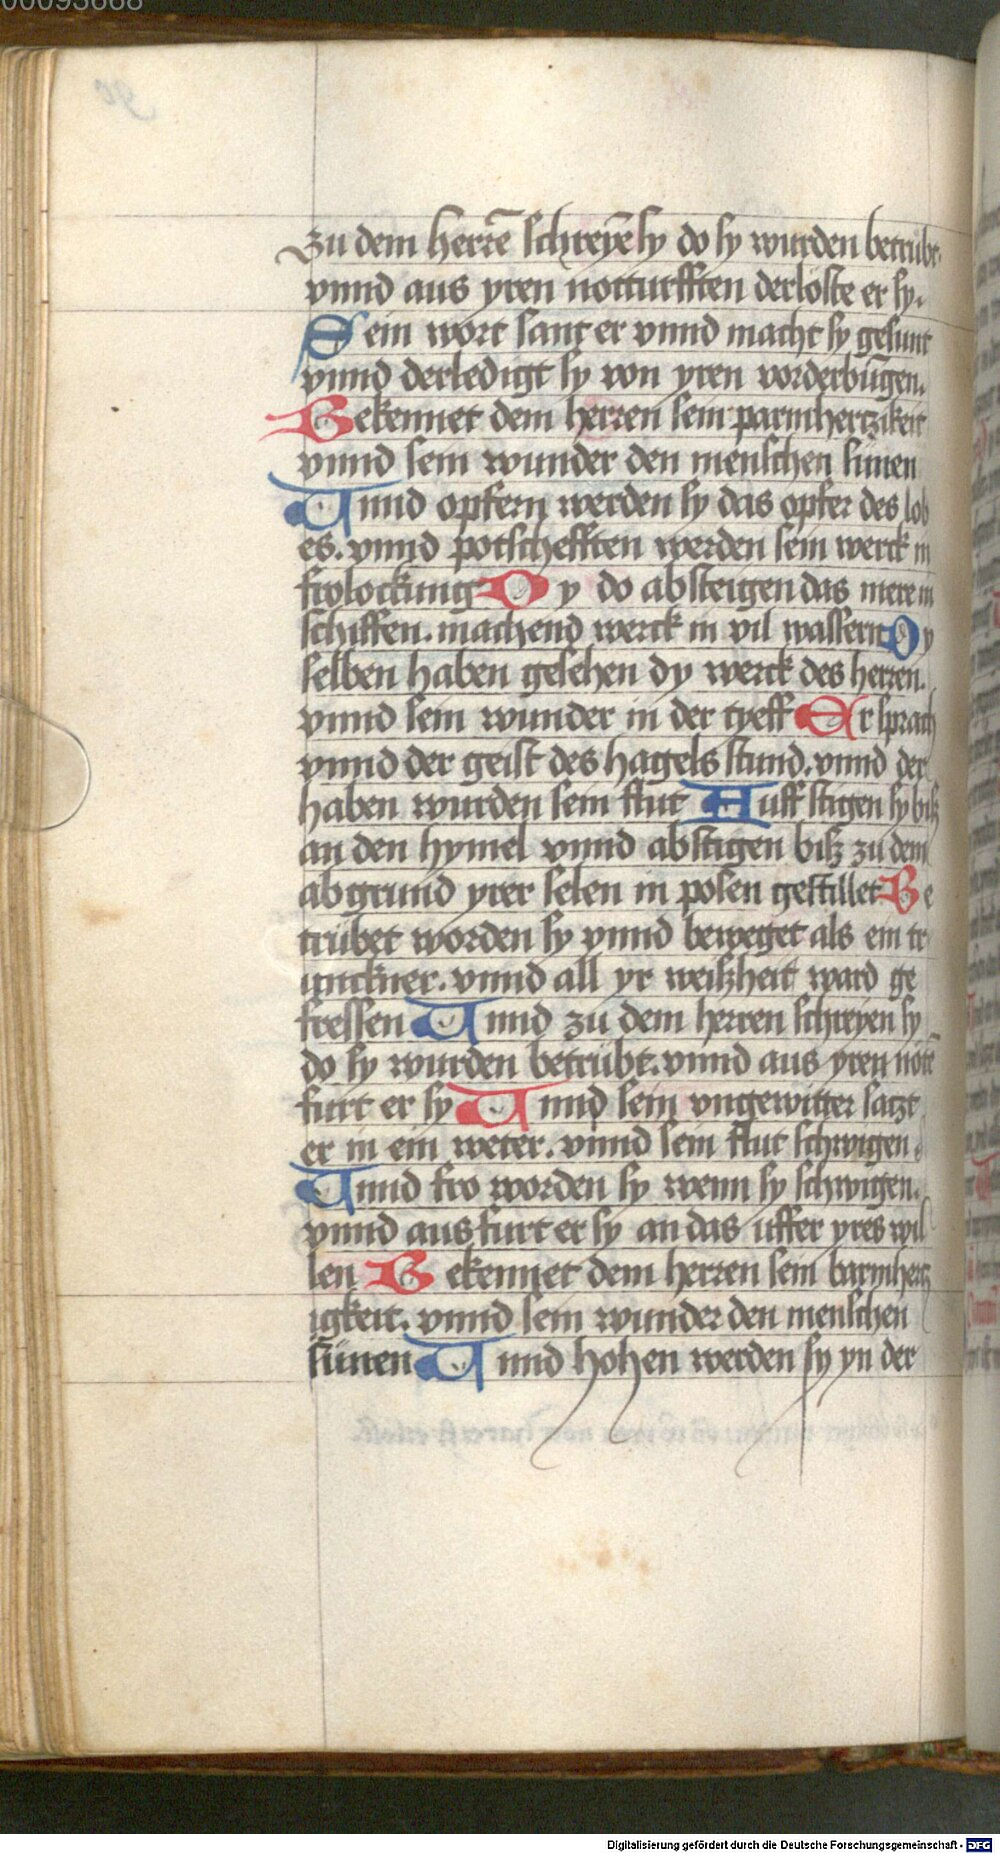 00093668
zu dem herrē schreyē sy do sy wurden betrübt.
vnnd aus yren notturfften derloste er sy.
Sein wort sant er vnnd macht sy gesunt
vnnd derledigt sy von yren vorderbūgen.
Bekennet dem herren sein parmhertzikeit
vnnd sein wunder den menschen sünen
Unnd opfern werden sy das opfer des lob
es. vnnd potschefften werden sein werck in
frolockung Dy do absteigen das mere in
schiffen. machend werck in vil wassern Dy
selben haben gesehen dy werck des herren.
vnnd sein wunder in der tyeff Er sprach
vnnd der geist des hagels stund. vnnd der
haben wurden sein flut Auff stigen sy biß
an den hymel vnnd abstigen biß zu dem
abgrund yrer selen in posen gestillet Be
trübet worden sy vnnd beweget als ein tr
unckner. vnnd all yr weißheit ward ge
fressen Unnd zu dem herren schreyen sy
do sy wurden betrübt. vnnd aus yren notē
furt er sy Unnd sein vngewitter satzt
er in ein weter. vnnd sein flut schwigen.
Unnd fro worden sy wenn sy schwigen.
vnnd aus furt er sy an das uffer yres wil
len Bekennet dem herren sein barmhertz
igkeit. vnnd sein wunder den menschen
sünen Unnd hohen werden sy yn der
Digitalisierung gefördert durch die Deutsche Forschungsgemeinschaft - DFG